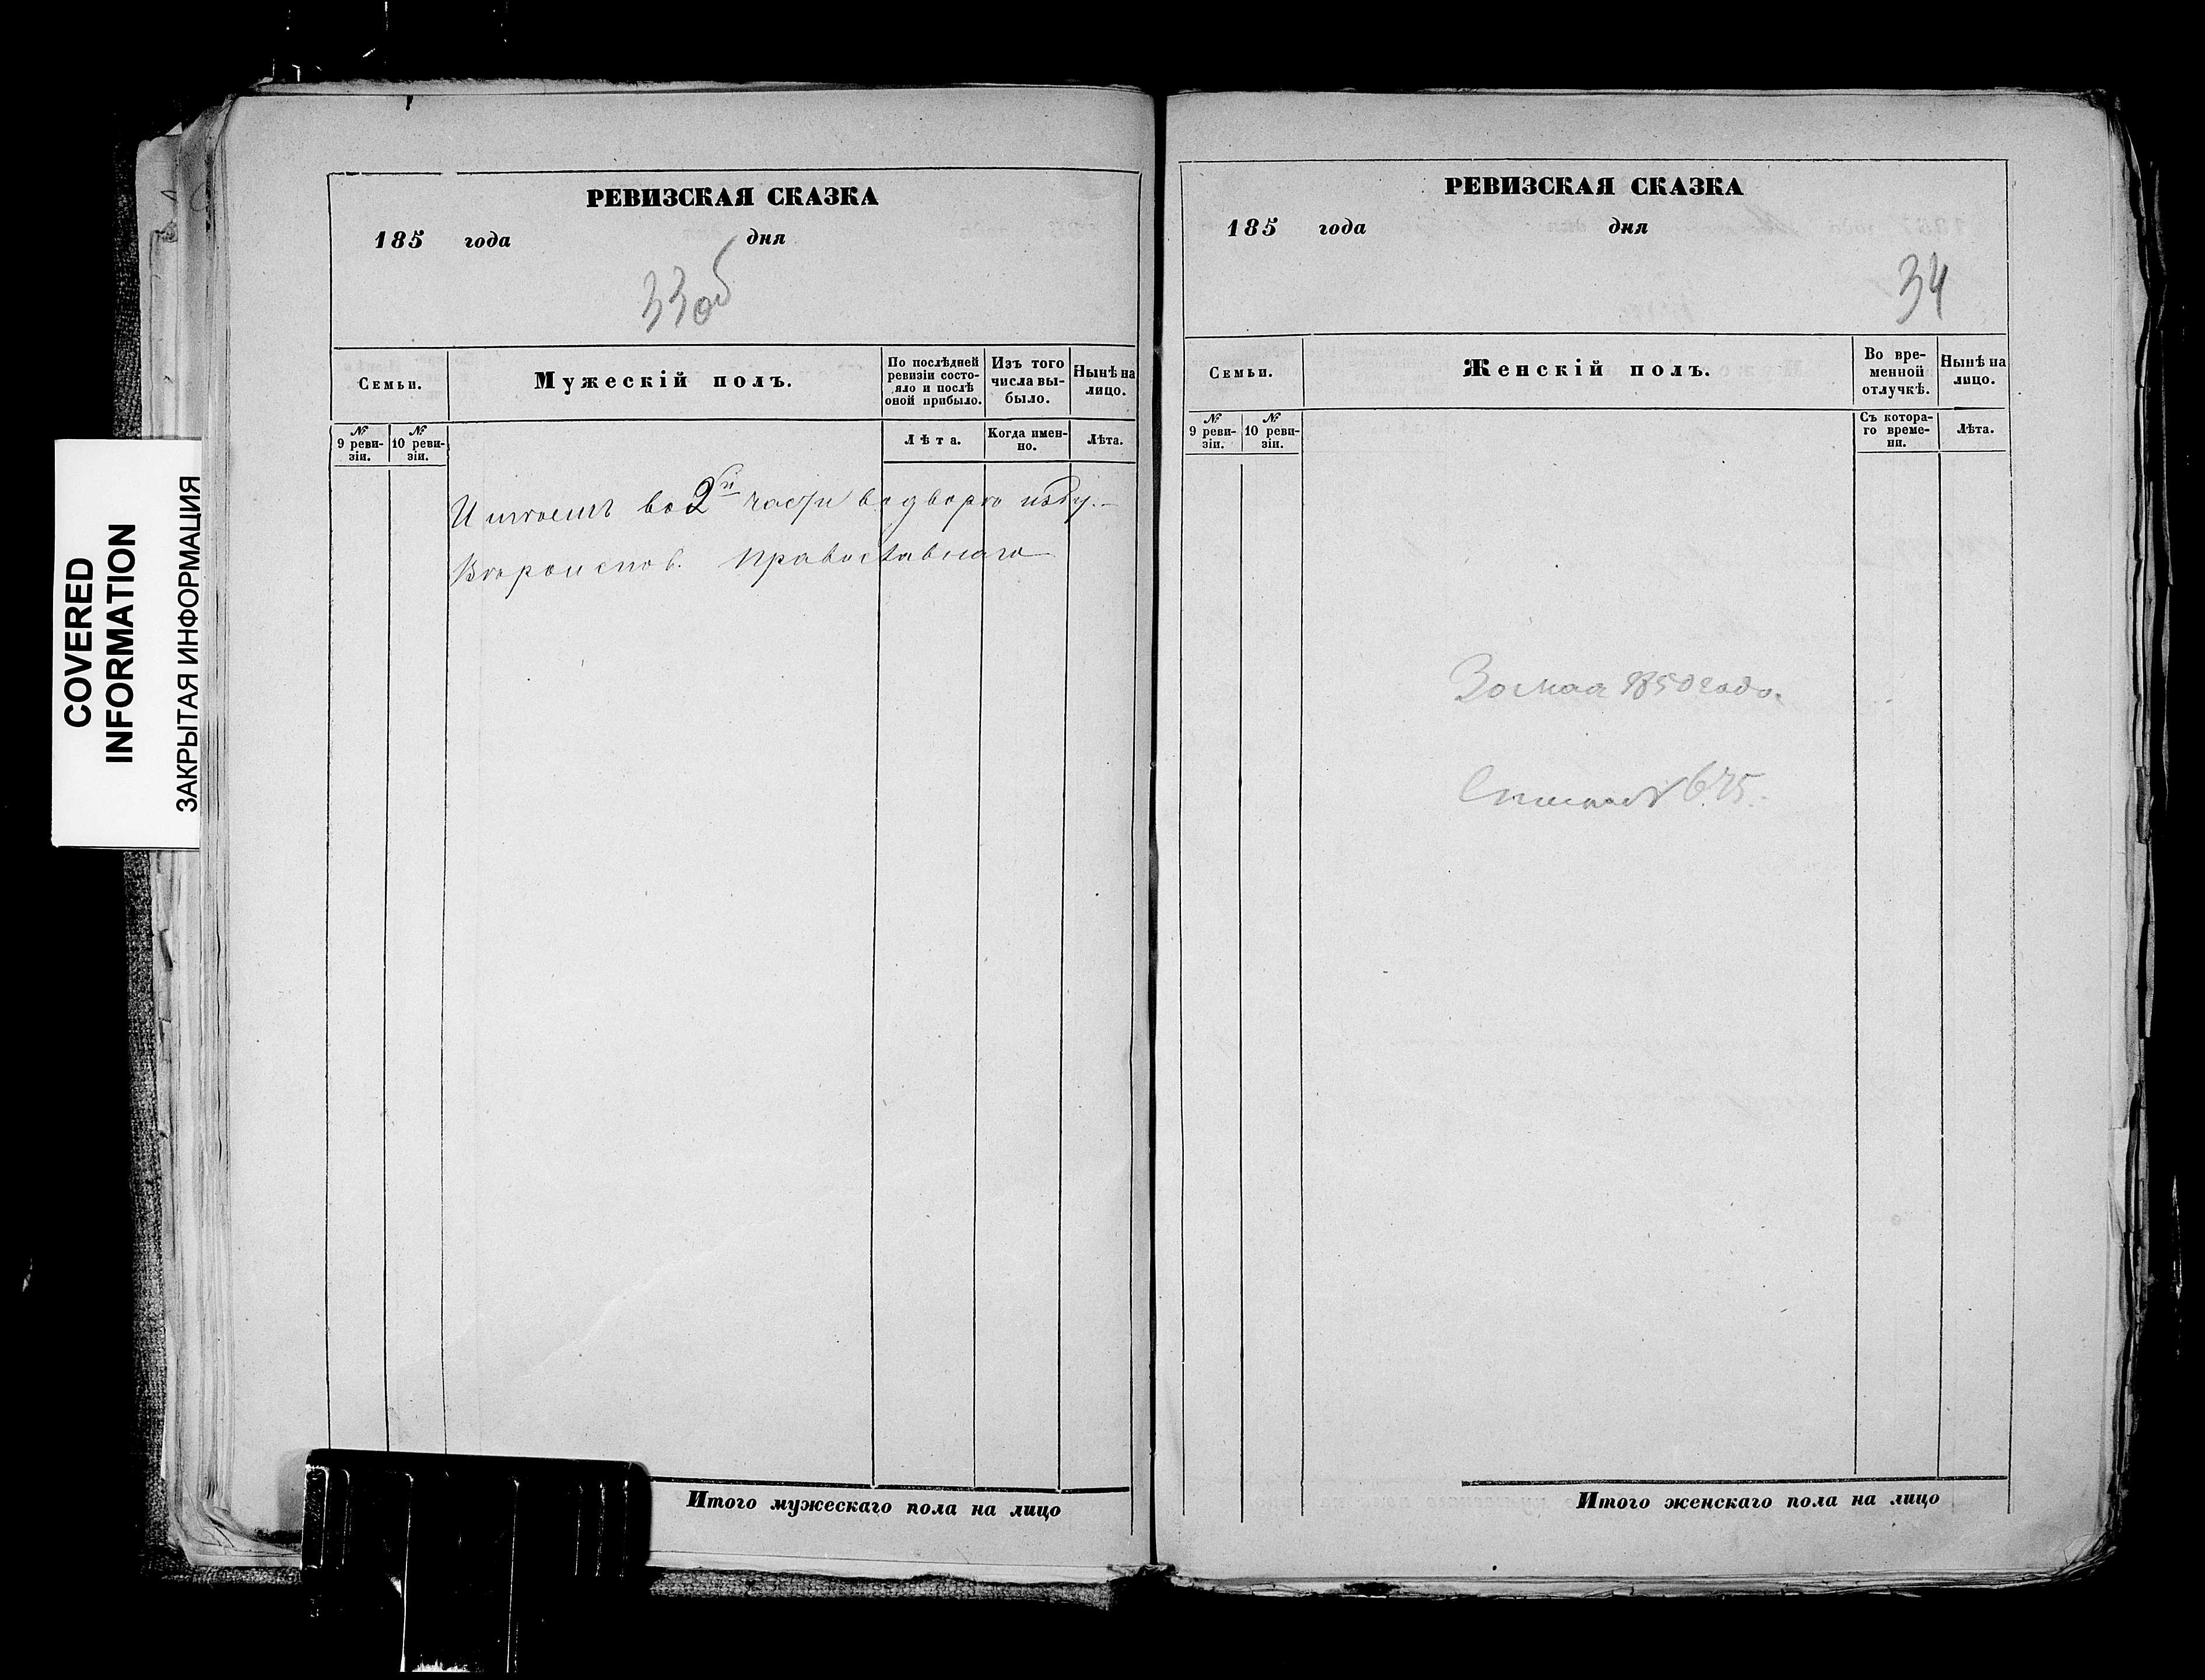 COVERED
INFORMATION
ЗАКРЫТАЯ ИНФОРМАЦИЯ
РЕВИЗСКАЯ СКАЗКА
185 года дня
33об
Семьи.
Мужескій полъ.
По послѣдней
ревизіи состо-
яло и послѣ
оной прибыло.
Изъ того
числа вы-
было.
Нынѣ на
лицо.
№
9 реви-
зіи.
№
10 реви-
зіи.
Лѣта.
Когда имен-
но.
Лѣта.
во 2й части
Вѣроиспов. православнаго
Итого мужескаго пола на лицо
РЕВИЗСКАЯ СКАЗКА
185 года дня
34
Семьи.
Женскій полъ.
Во вре-
менной
отлучкѣ.
Нынѣ на
лицо.
№
9 реви-
зіи.
№
10 реви-
зіи.
Съ котора-
го време-
ни.
Лѣта.
мая 1850 года.
Итого женскаго пола на лицо